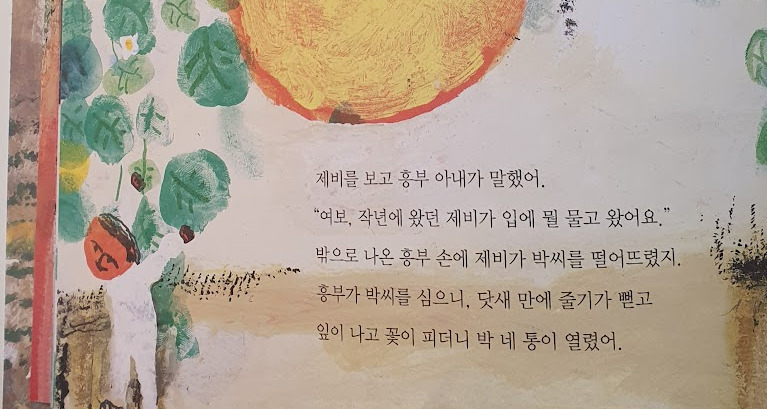 제비를 보고 흥부 아내가 말했어.
“여보, 작년에 왔던 제비가 입에 뭘 물고 왔어요.”
밖으로 나온 흥부 손에 제비가 박씨를 떨어뜨렸지.
흥부가 박씨를 심으니, 닷새 만에 줄기가 뻗고
잎이 나고 꽃이 피더니 박 네 통이 열렸어.